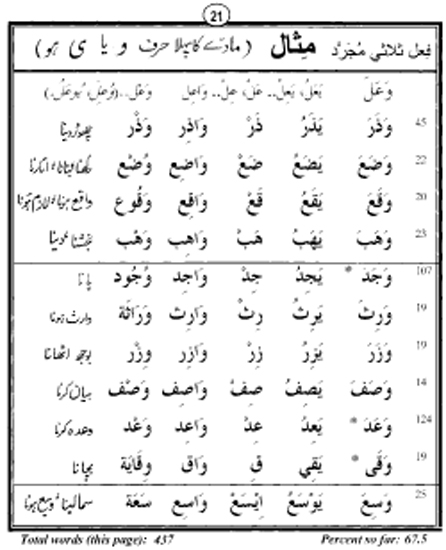 21
فعل ثلاثي مجرد مثال (مادّے کا پہلا حرف و یا ی ہو)
وَعَلَ يَعَلُ، يَعِلُ.. عَلْ، عِلْ.. وَاعِل وَعْل..
45 وَذَرَ يَذَرُ ذَرْ وَاذِر وَذْر چھوڑ دینا
22 وَضَعَ يَضَعُ ضَعْ وَاضِع وَضْع رکھنا
20 وَقَعَ يَقَعُ قَعْ وَاقِع وُقُوع واقع ہونا
23 وَهَبَ يَهَبُ هَبْ وَاهِب وَهْب بخشنا
107 وَجَدَ * يَجِدُ جِدْ وَاجِد وُجُود پانا
19 وَرِثَ يَرِثُ رِثْ وَارِث وَرَاثَة وارث ہونا
19 وَزَرَ يَزِرُ زِرْ وَازِر وِزْر بوجھ اٹھانا
14 وَصَفَ يَصِفُ صِفْ وَاصِف وَصْف بیان کرنا
124 وَعَدَ * يَعِدُ عِدْ وَاعِد وَعْد وعدہ کرنا
19 وَقَى * يَقِي قِ وَاقٍ وِقَايَة بچانا
25 وَسِعَ يَوْسَعُ اِيْسَعْ وَاسِع سَعَة سمالینا، وسیع ہونا
Total words (this page): 437 Percent so far: 67.5